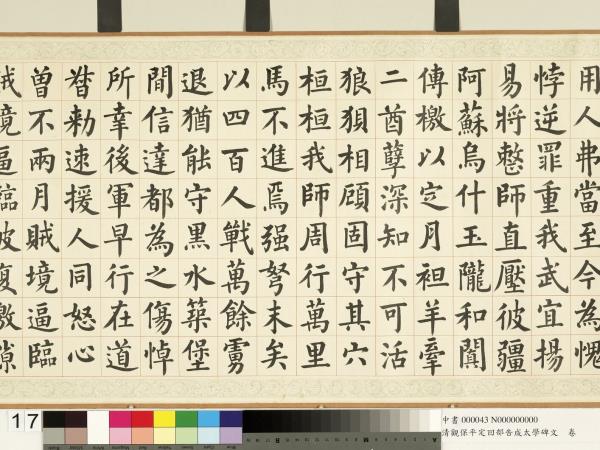 用人弗當至今為愧
悖逆罪重我武宜揚
易將整師直壓彼疆
阿蘇烏什玉隴和闐
傳檄以定月袒羊牽
二酋孽深知不可活
狼狽相顧固守其穴
桓桓我師周行萬里
馬不進焉强弩末矣
以四百人戰萬餘虜
退猶能守黑水築堡
間信達都為之傷悼
所幸後軍早行在道
督勅速援人同怒心
曾不兩月賊境逼臨
17
中書 000043 N000000000
清觀保平定回部告成太學碑文 卷